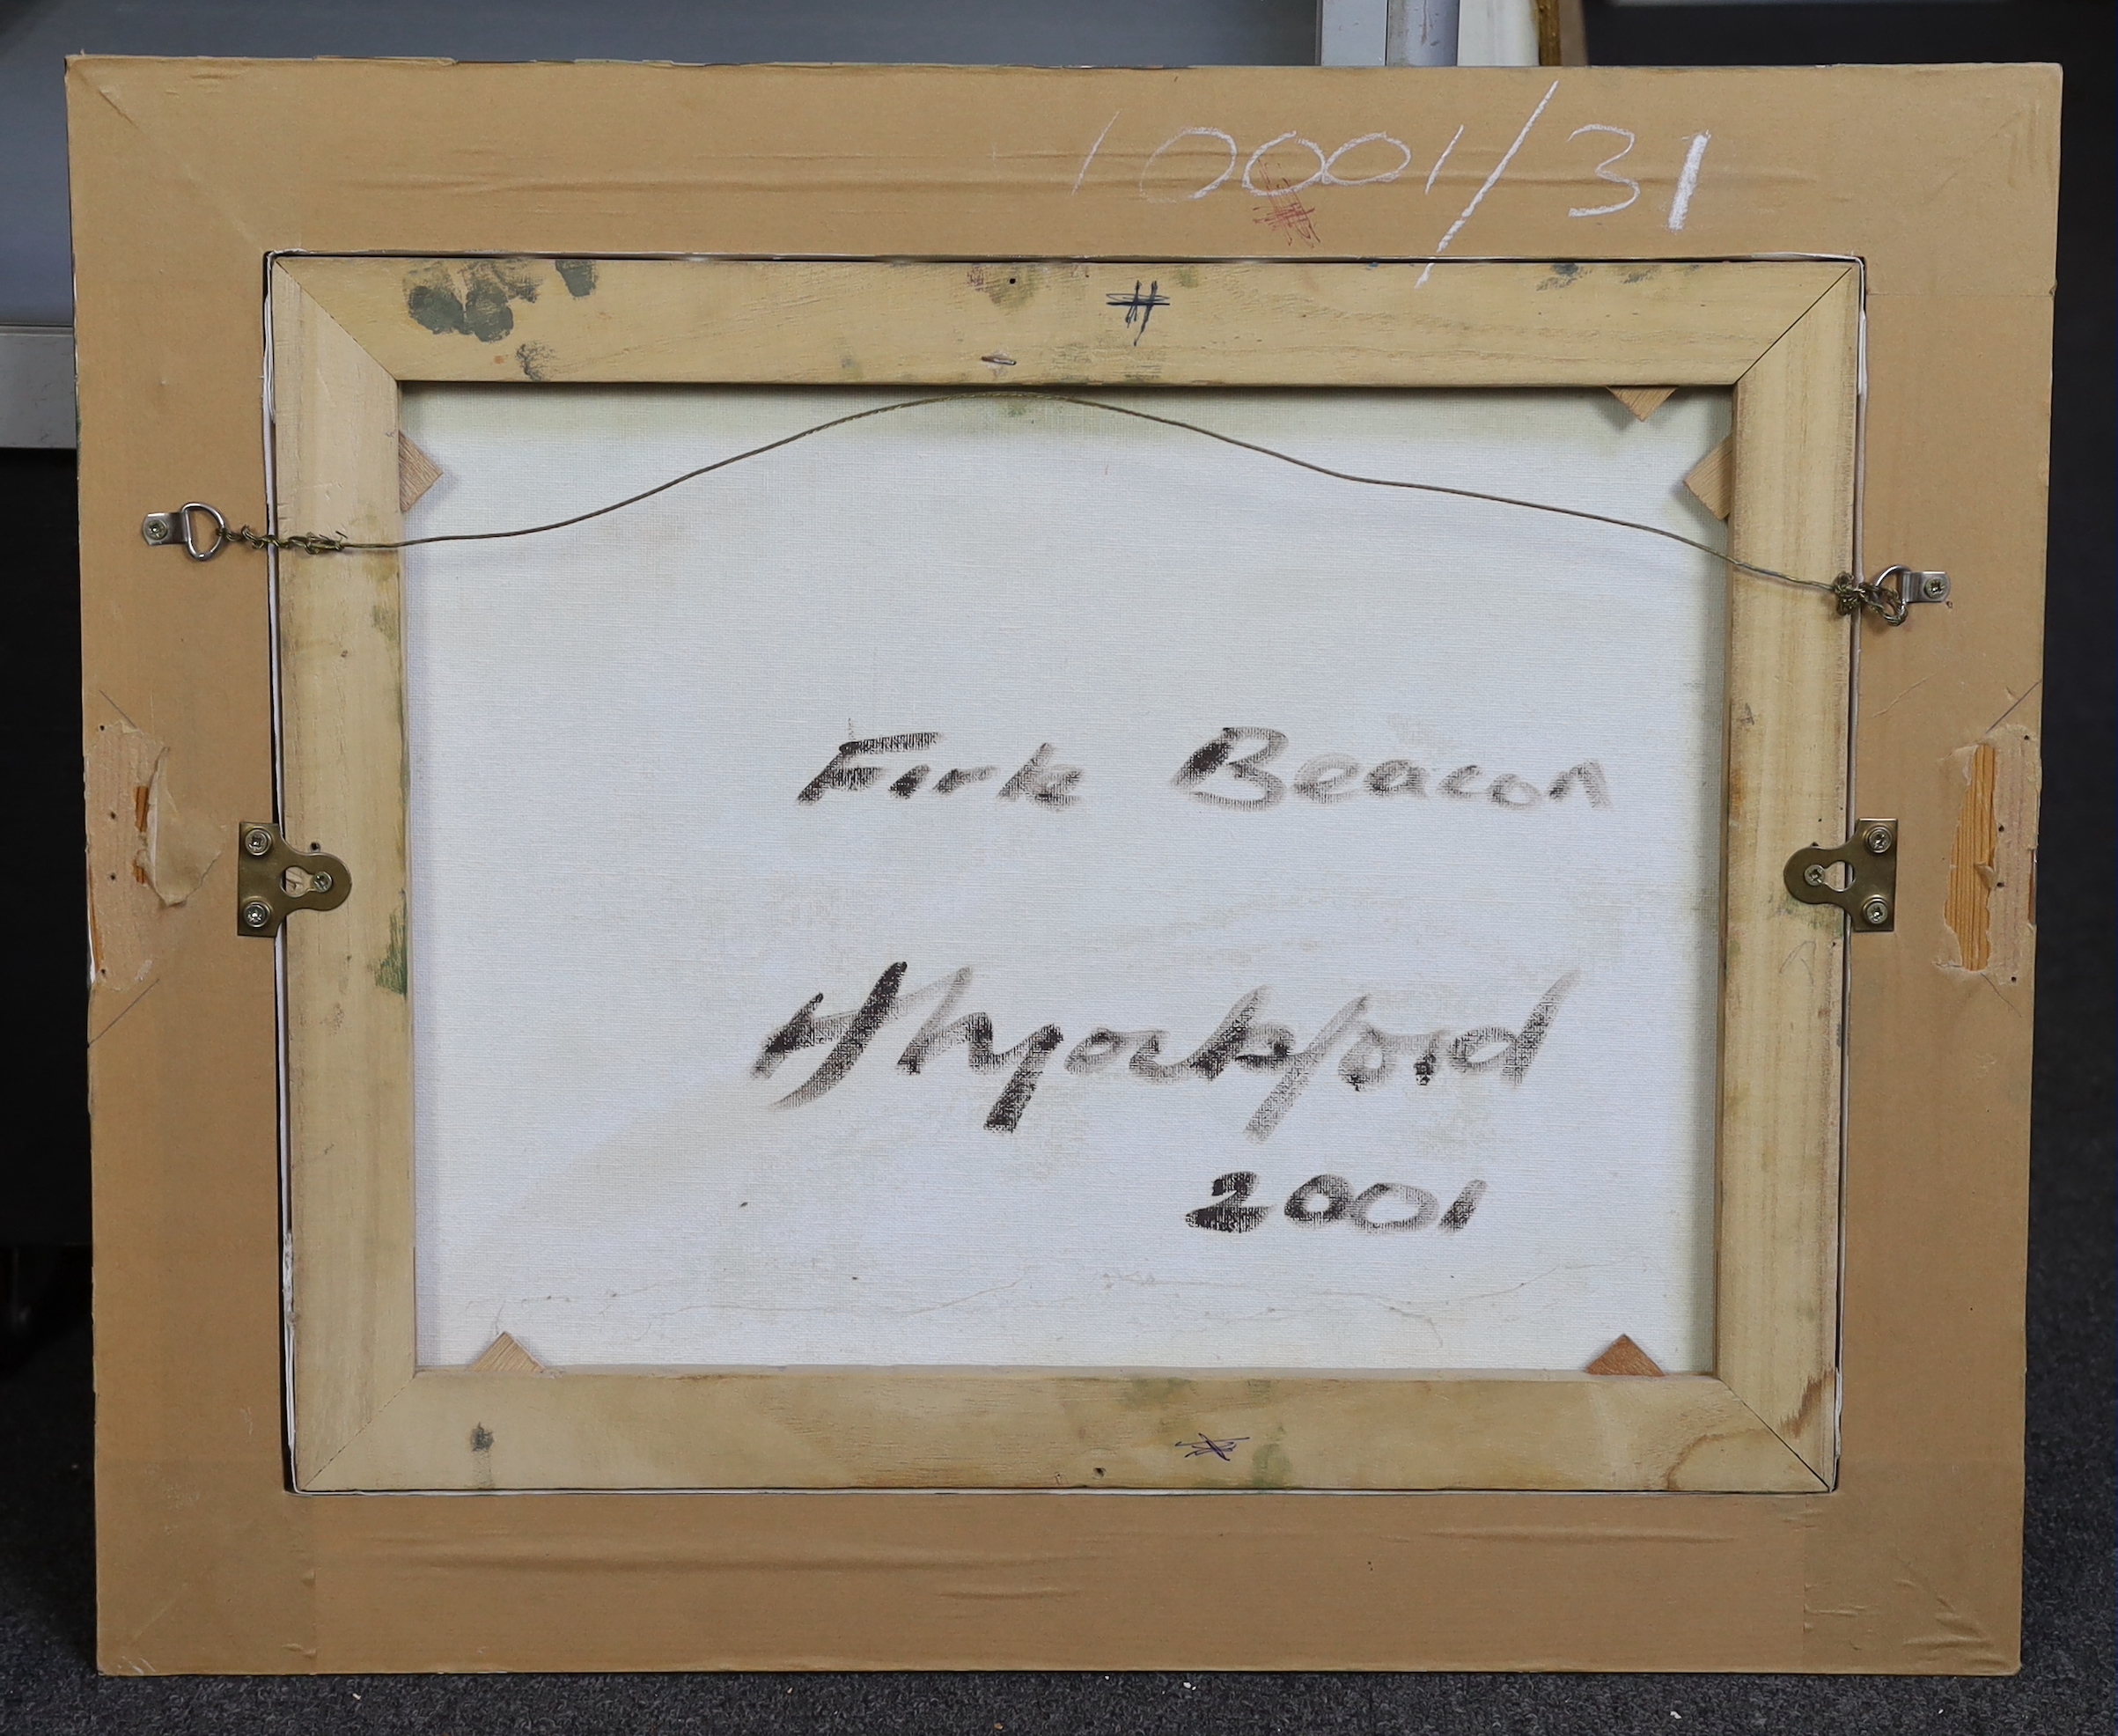 10001/31
#
Firle Beacon
2001